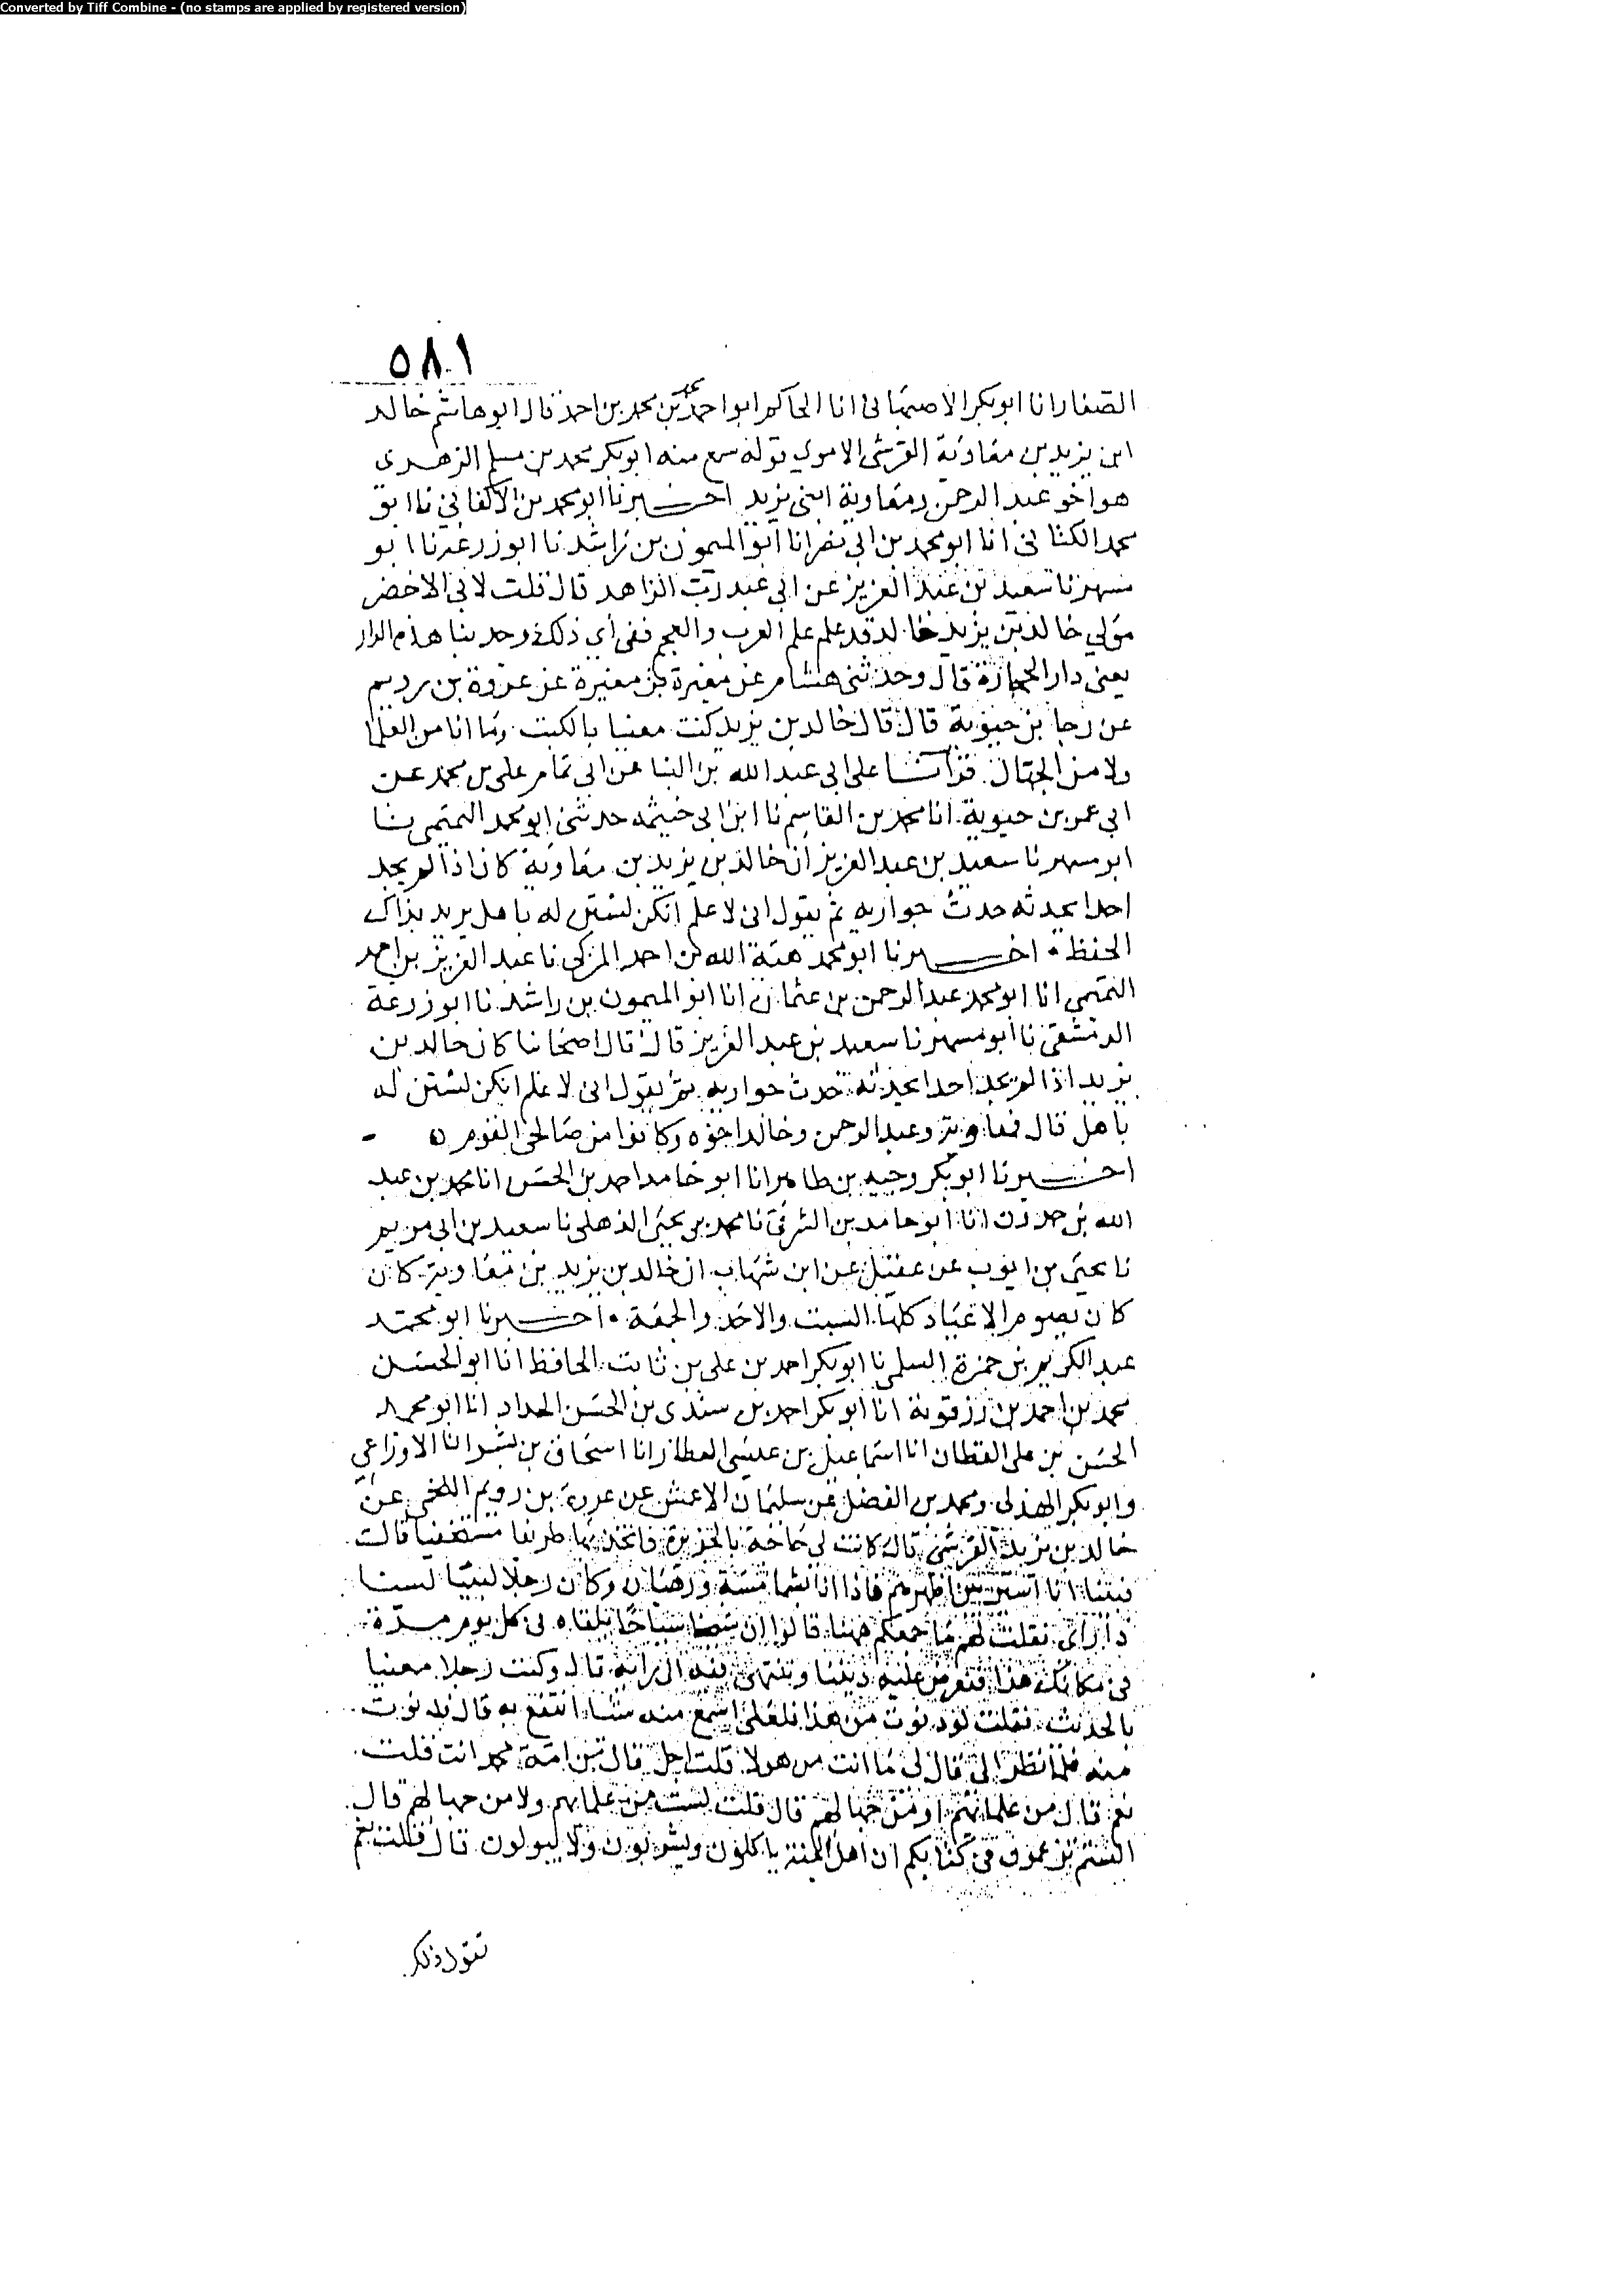 Converted by Tiff Combine - (no stamps are applied by registered version)
٥٨١
الصفار انا ابو بكر الاصبهانى انا الحاكم ابو احمد محمد بن محمد بن احمد قال ابو هاشم خالد
ابن يزيد بن معاوية القرشى الاموي قوله سمع منه ابو بكر محمد بن مسلم الزهرى
هو اخو عبد الرحمن ومعاوية ابنى يزيد اخبرنا ابو محمد بن الاكفاني نا ابو
محمد الكتانى انا ابو محمد بن ابى نصر انا ابو الميمون بن راشد نا ابو زرعة نا ابو
مسهر نا سعيد بن عبد العزيز عن ابى عبد رب الزاهد قال قلت لابى الاخضر
مولي خالد بن يزيد خالد قد علم علم العرب والعجم ففى أي ذلك وجد بنا هذه الدار
يعنى دار الحجارة قال وحدثنى هشام عن مغيرة بن مغيرة عن عروة بن رديم
عن رجا بن حيوية قال قال خالد بن يزيد كنت معنيا بالكتب وما انا من العلما
ولا من الجهال قرأنا على ابى عبد الله بن البنا عن ابى تمام على بن محمد عن
ابي عمر بن حيوية انا محمد بن القاسم نا ابن ابى خيثمه حدثنى ابو محمد التميمى نا
ابو مسهر نا سعيد بن عبد العزيز ان خالد بن يزيد بن معاوية كان اذا لم يجد
احدا يحدثه حدث جواريه ثم يقول انى لاعلم انكن لستن له باهل يريد بذاك
الحفظ اخبرنا ابو محمد هبة الله بن احمد المزكى نا عبد العزيز بن احمد
التميمي انا ابو محمد عبد الرحمن بن عثمان انا ابو الميمون بن راشد نا ابو زرعة
الدمشقى نا أبو مسهر نا سعيد بن عبد العزيز قال قال اصحابنا كان خالد بن
يزيد اذا لم يجد احدا يحدثه حدث جواريه ثم يقول انى لاعلم انكن لستن له
باهل قال فمعاوية وعبد الرحمن وخالد اخوه وكانوا من صالحى القوم
اخبرنا ابو بكر وجيه بن طاهر انا ابو حامد احمد بن الحسن انا محمد بن عبد
الله بن حمدون انا ابو حامد بن الشرقى نا محمد بن يحيى الذهلى نا سعيد بن ابى مريم
نا يحيى بن ايوب عن عقيل عن ابن شهاب ان خالد بن يزيد بن معاوية كان
كان يصوم الاعياد كلها السبت والاحد والجمعة اخبرنا ابو محمد
عبد الكريم بن حمزة السلمى نا ابو بكر احمد بن على بن ثابت الحافظ انا ابو الحسن
محمد بن احمد بن رزقوية انا ابو بكر احمد بن سندى بن الحسن الحداد انا ابو محمد
الحسن بن على القطان انا اسماعيل بن عيسى العطار انا اسحاق بن بشر انا الاوزاعي
وابو بكر الهذلى ومحمد بن الفضل عن سليمان الاعمش عن عروة بن رويم اللخمى عن
خالد بن يزيد القرشى قال كانت لى حاجة بالجزيرة فاتخذتها طريقا مستخفيا قالت
فبينا انا اسير بين اظهرهم فاذا انا بشمامسة ورهبان وكان رجلا لبيبا لسنا
ذا راى فقلت لهم ما جمعكم ههنا قالوا ان شيخا سياحا نلقاه فى كل يوم مرة
فى مكانك هذا فنعرض عليه ديننا وننتهى فيه الى رايه قال وكنت رجلا معنيا
بالحديث فقلت لو دنوت من هذا فلعلى اسمع منه شيئا انتفع به قال فدنوت
منه فلما نظر الى قال لى ما انت من هولا قلت اجل قال من امة محمد انت قلت
نعم قال من علمائهم او من جهالهم قال قلت لست من علمايهم ولا من جهالهم قال
الستم تزعمون فى كتابكم ان اهل الجنة ياكلون ويشربون ولا يبولون قال قلت نعم
نقول ذلك